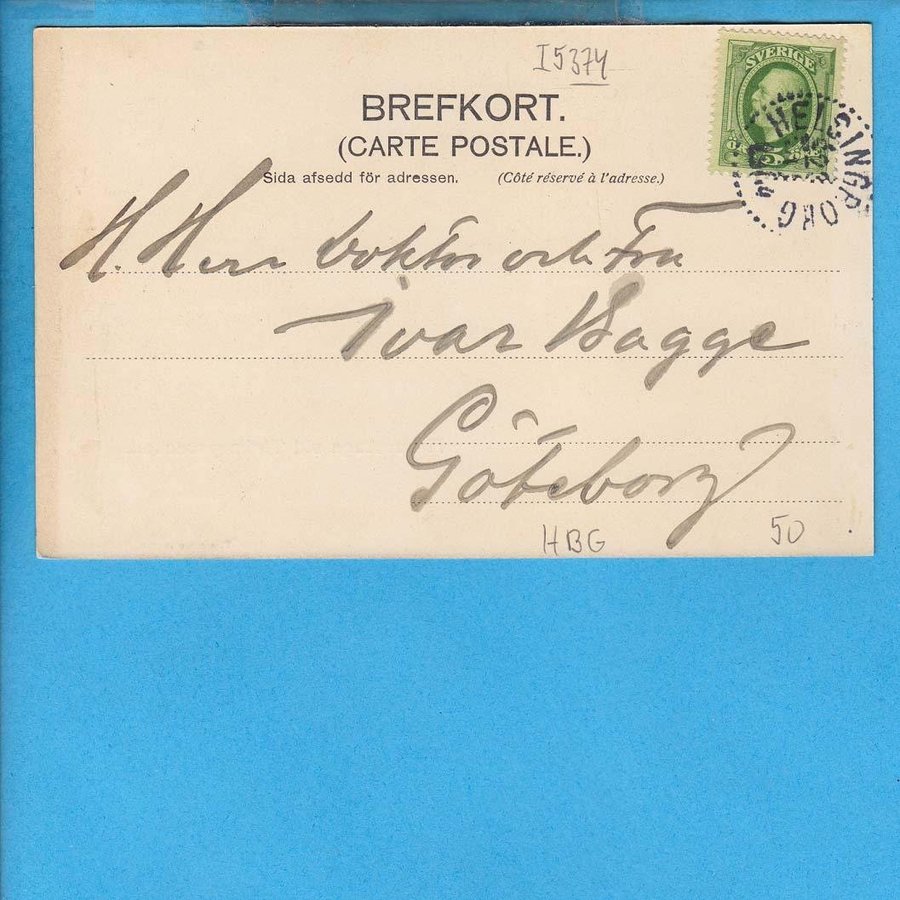 I5374
BREFKORT.
(CARTE POSTALE.)
Sida afsedd för adressen. (Côté réservé à l'adresse.)
SVERIGE
5
HELSINGBORG
H. Herr Doktor och Fru
Ivar Bagge
Göteborg
HBG 50